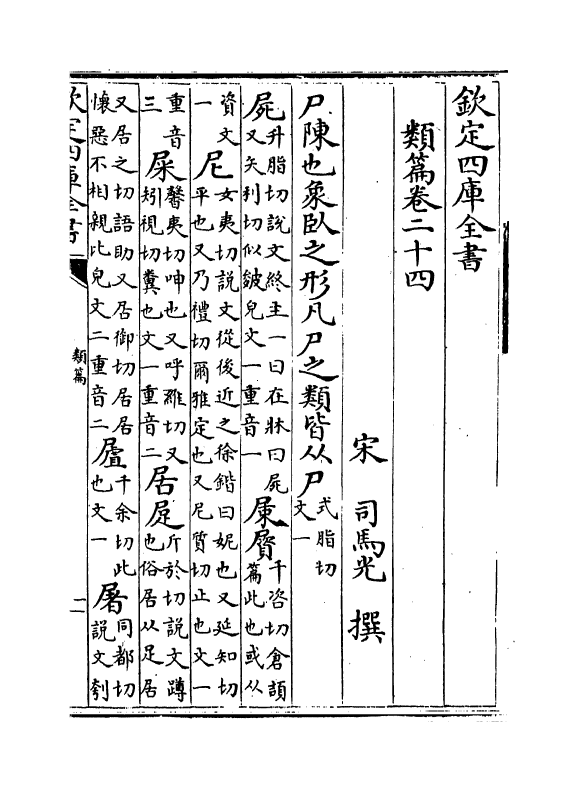 欽定四庫全書
類篇卷二十四
宋 司馬光 撰
尸陳也象臥之形凡尸之類皆从尸式脂切文一
屍升脂切說文終主一曰在牀曰屍又矢利切似皴皃文一重音一 千咨切倉頡篇此也或从
資文一尼女夷切說文從後近之徐鍇曰妮也又延知切平也又乃禮切爾雅定也又尼質切止也文一
重音三屎馨夷切呻也又呼維切又矧視切糞也文一重音二居𡱒斤於切說文蹲也俗居从足居
又居之切語助又居御切居居懷惡不相親比皃文二重音二 千余切此也文一屠同都切說文刳
欽定四庫全書
類篇